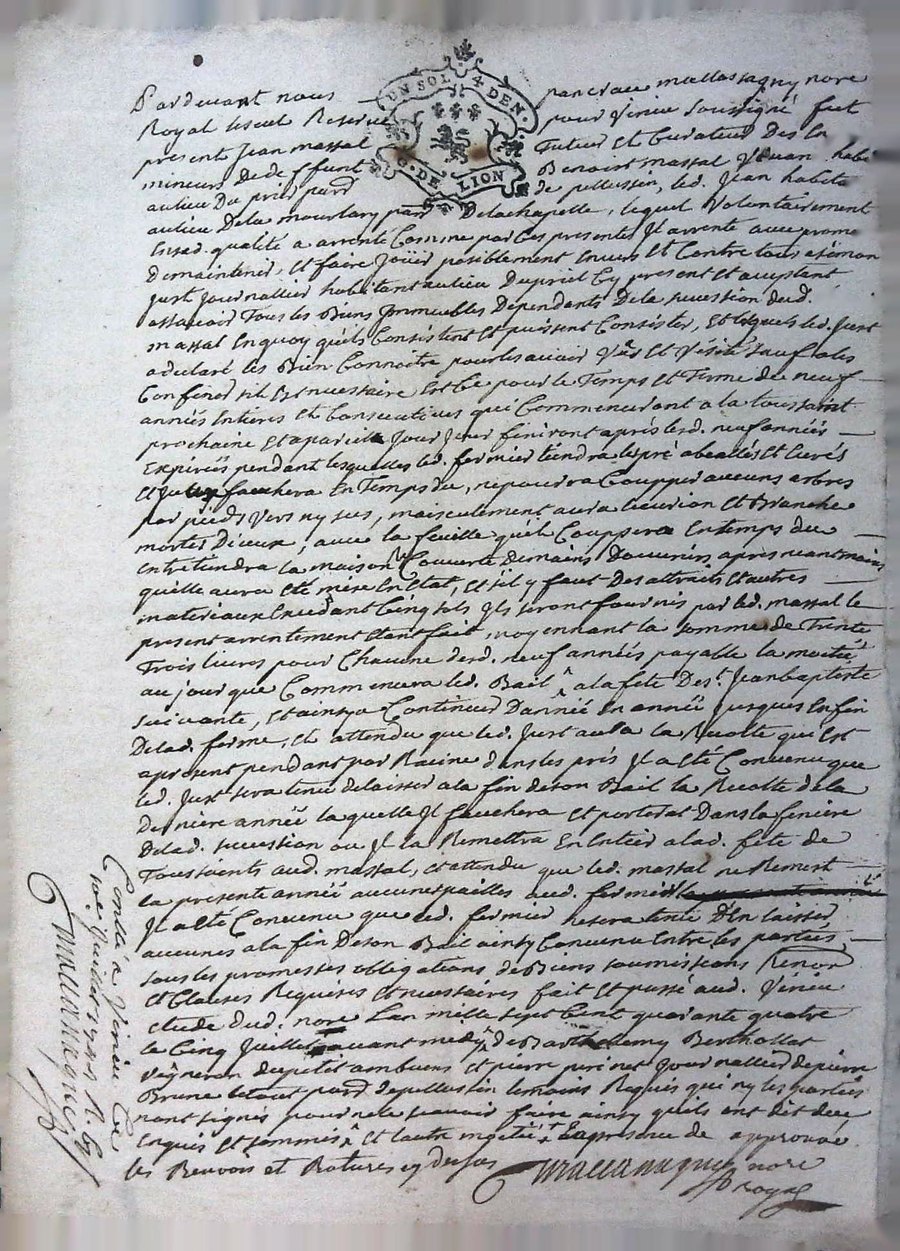 UN SOL 4 DEN.
G. DE LION
Pardevant nous pancrace notte
Royal Reservé pour Virieu soussigné fut
present Jean massal Tuteur et Curateur Des
mineurs De deffunt Benoist massal vivant habt
aulieu Du pard de pellussin, led. Jean habitt
aulieu Dela pard Delachapelle, lequel Volontairement
Ensad. qualité a arrenté Comme par Ces presentes Il arrente avec prome
De maintenir, et faire Joüir paisiblement Envers et Contre tous a simon
Just Journallier habitant aulieu present et aceptant
assavoir Tous les Biens Immeubles Dépendants Dela succession dud.
massal En quoy qu'ils Consistent et puissent Consister, et lesquels led. Just
a declaré les Bien Connoitre pour les avoir Vûs et Visités sauf ales
Confiner s'il Est necessaire Et Ce pour le Temps et Terme de neuf
années Entieres et Consecutives qui Commenceront a la toussaint
prochaine et a pareil Jour Jceux finiront aprés lesd. neuf années
Expirées pendant lesquelles led. fermier tiendra les pré abealés et Curés
et Jceux fauchera En Temps du, ne pourra Coupper aucuns arbres
par pieds Vers ny secs, mais seulement aura et Branche
mortes D'iceux, avec la feuille qu'il Couppera En temps du
entretiendra la maison Couverte Demains D'ouvriers apres neantmoins
quelle aura eté mise En Etat, et s'il y faut Des attraits et autres
materiaux Excedant Cinq sols Ils seront fournis par led. massal le
present arrentement etant fait, moyennant la somme de Trente
Trois livres pour Chacune desd. neuf années payable la moitié
au jour que Commencera led. Bail ^ a la fete De st. Jean baptiste
suivante, et ainsy a Continuer D'année En année jusques En fin
Delad. ferme, et attendu que led. Just aura la Recolte qui Est
apresent pendant par Racine dans les prés Il a eté Convenu que
led. Just sera tenu delaisser a la fin de son Bail la Recolte dela
Derniere année laquelle Il fauchera et portera Dans la feniere
Delad. succession ou Il la Remettra En Entier a lad. fete de
Toussients aud. massal, et attendu que led. massal ne Remest
la presente année aucunes pailles aud. fermier
Il a eté Convenu que led. fermier ne sera tenu D'En laisser
aucunes a la fin De son Bail ainsy Convenu Entre les parties
sous les promesses obligations de Biens soumissions Renon
et Clauses Requises et necessaires fait et passé aud. Virieu
etude dud. notre L'an mille sept Cent quarante quatre
le Cinq Juillet avant midy De Barthelemy Berthollat
Vigneron depetit ambuens et pierre perinet Journallier de pierre
Brune letout pard de pellussin temoins Requis qui ny les parties
n'ont signés pour ne le scavoir faire ainsy quils ont dit de ce
Enquis et sommés ^ et l'autre moitié + En presence de approuvé
les Renvois et Ratures cy dessus notre
Royal
Conllé a Virieu Ce